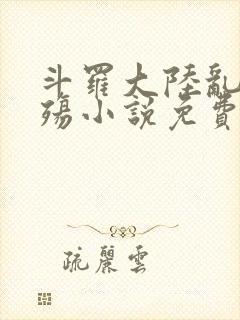 斗羅大陸亂
殤小說免費
疏麗雲